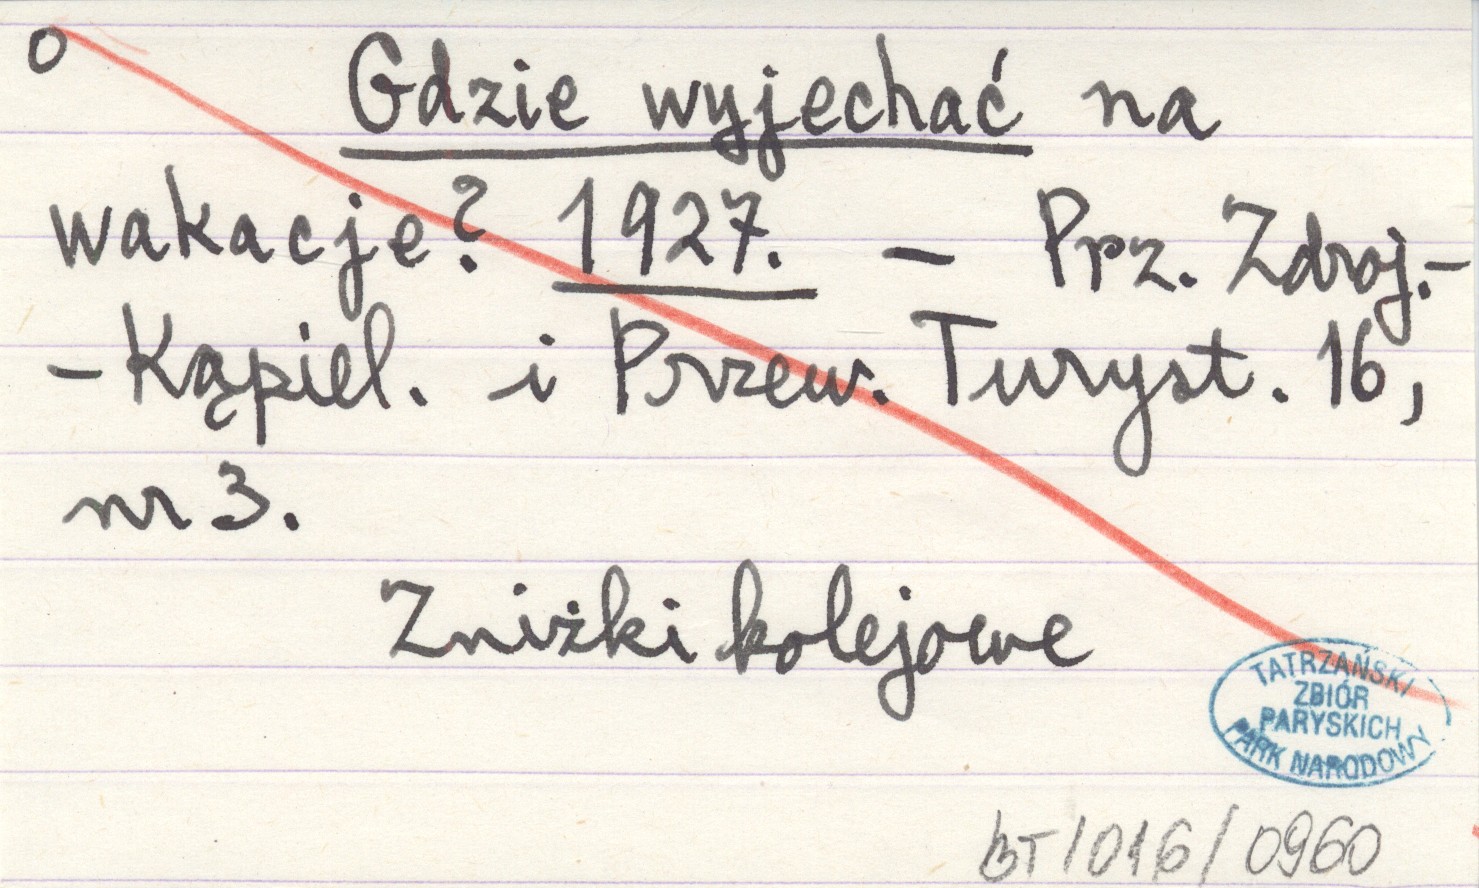 o
Gdzie wyjechać na
wakacje? 1927. – Prz. Zdroj.-
- Kąpiel. i Przew. Turyst. 16,
nr 3.
Zniżki kolejowe
TATRZAŃSKI
ZBIÓR
PARYSKICH
PARK NARODOWY
BT/016/0960